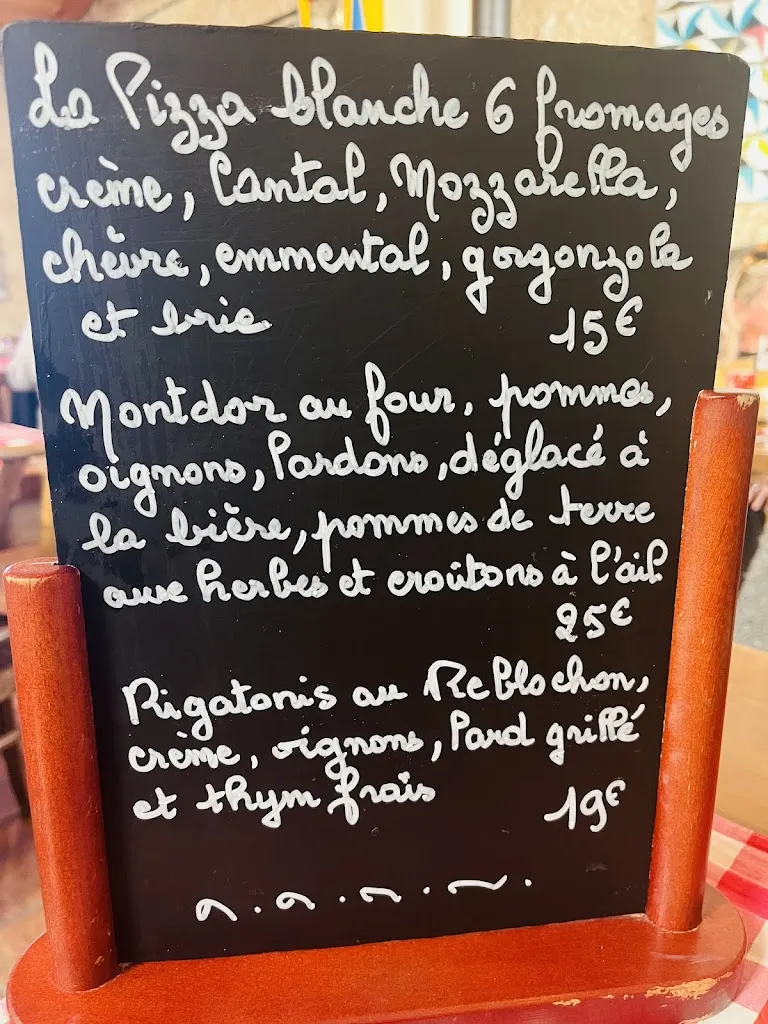 La Pizza blanche 6 fromages
crème, Cantal, Mozzarella,
chèvre, emmental, gorgonzola
et brie 15€
Montdor au four, pommes,
oignons, lardons, déglacé à
la bière, pommes de terre
aux herbes et croûtons à l'ail
25€
Rigatonis au Reblochon,
crème, oignons, lard grillé
et thym frais 19€